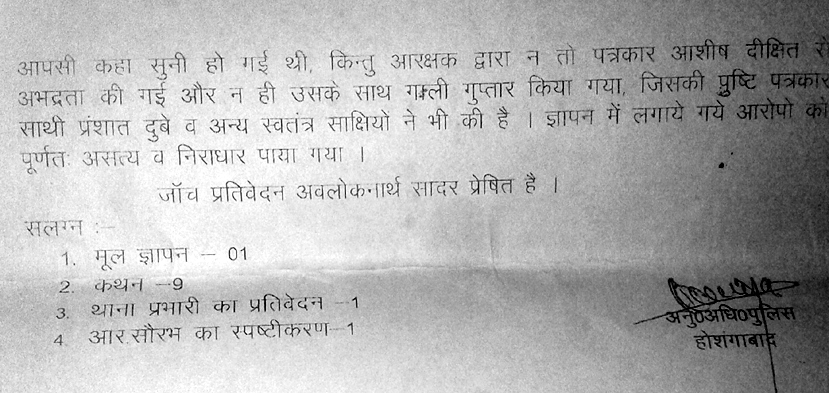 आपसी कहा सुनी हो गई थी, किन्तु आरक्षक द्वारा न तो पत्रकार आशीष दीक्षित से
अभद्रता की गई और न ही उसके साथ गाली गुप्तार किया गया, जिसकी पुष्टि पत्रकार
साथी प्रंशात दुबे व अन्य स्वतंत्र साक्षियो ने भी की है । ज्ञापन में लगाये गये आरोपो को
पूर्णतः असत्य व निराधार पाया गया ।
जॉच प्रतिवेदन अवलोकनार्थ सादर प्रेषित है ।
सलग्न :–
1. मूल ज्ञापन – 01
2. कथन –9
3. थाना प्रभारी का प्रतिवेदन –1
4. आर.सौरभ का स्पष्टीकरण–1
अनु0अधि0पुलिस
होशंगाबाद